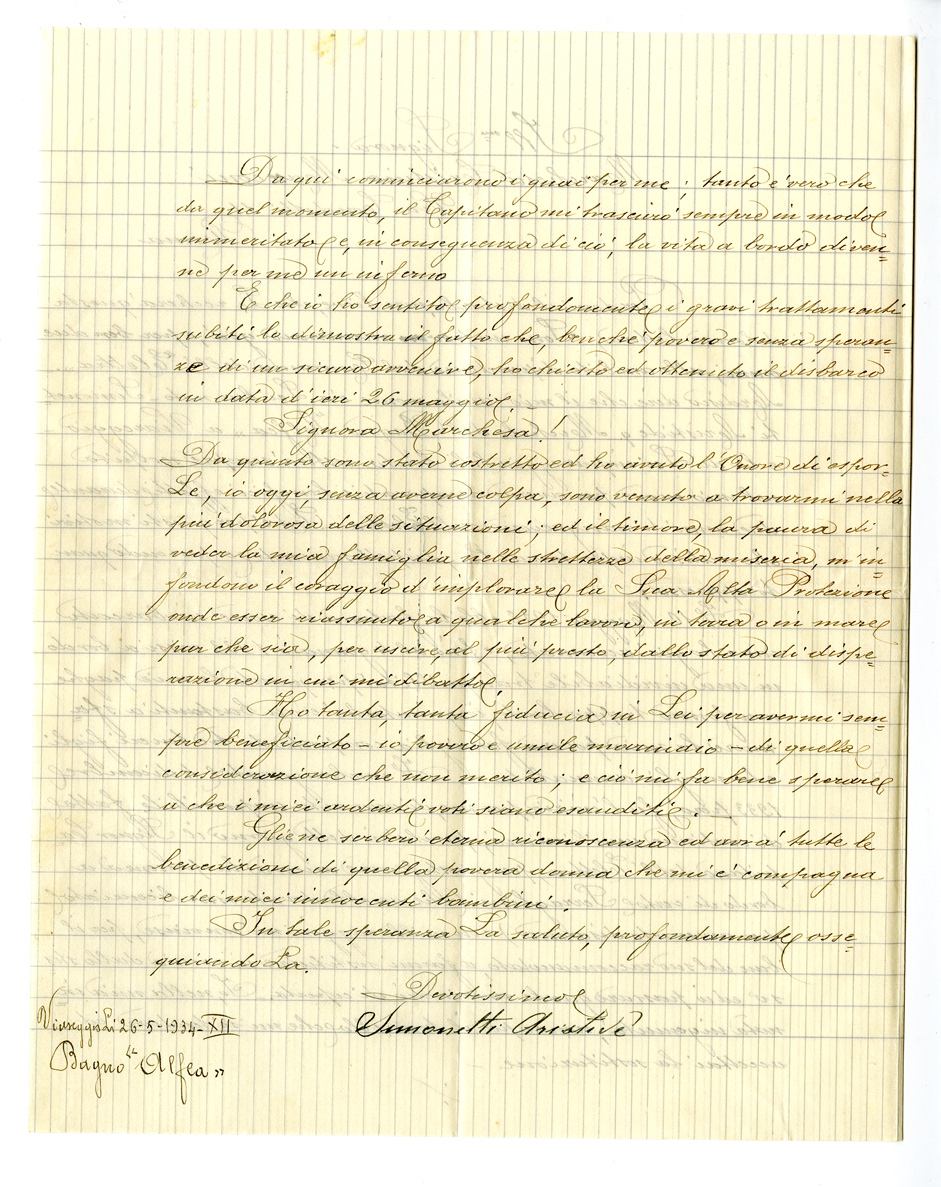 Da quì cominciarono i guai per me; tanto è vero che
da quel momento, il Capitano mi trascurò sempre in modo
immeritato e, in conseguenza di ciò, la vita a bordo diven=
ne per me un inferno
E che io ho sentito profondamente i gravi trattamenti
subiti lo dimostra il fatto che, benchè povero e senza speran=
ze di un sicuro avvenire, ho chiesto ed ottenuto il disbarco
in data d'ieri 26 maggio
Signora Marchesa!
Da quanto sono stato costretto ed ho avuto l'Onore di espor-
Le, io oggi, senza averne colpa, sono venuto a trovarmi nella
più dolorosa delle situazioni; ed il timore, la paura di
veder la mia famiglia nelle strettezze della miseria, m'in=
fondono il coraggio d'implorare la Sua Alta Protezione
onde esser riassunto a qualche lavoro, in terra o in mare
pur che sia, per uscire, al più presto, dallo stato di dispe=
razione in cui mi dibatto.
Ho tanta, tanta fiducia in Lei per avermi sem=
pre beneficiato - io povero e umile marinaio - di quella
considerazione che non merito; e ciò mi fa bene sperare
a che i miei ardenti voti siano esauditi.
Gliene serberò eterna riconoscenza ed avrà tutte le
benedizioni di quella povera donna che mi è compagna
e dei miei innocenti bambini.
In tale speranza La saluto, profondamente osse=
quiandoLa.
Devotissimo
Simonetti Aristide
Viareggio Li 26-5-1934-XII
Bagno "Alfea"